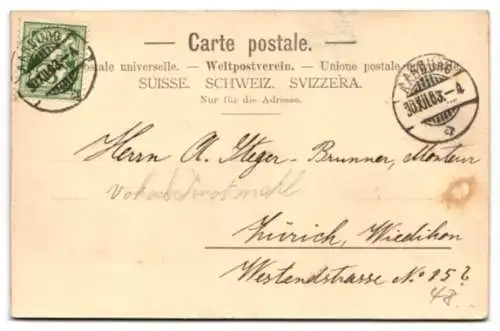 — Carte postale. —
stale universelle. — Weltpostverein. — Unione postale
SUISSE. SCHWEIZ. SVIZZERA.
Nur für die Adresse.
AARBURG
30.XII.03.–4
AARBURG
30.XII.03.–4
Herrn A. Steger-Brunner, Monteur
Zürich, Wiedikon
Westendstrasse No 95?
48.